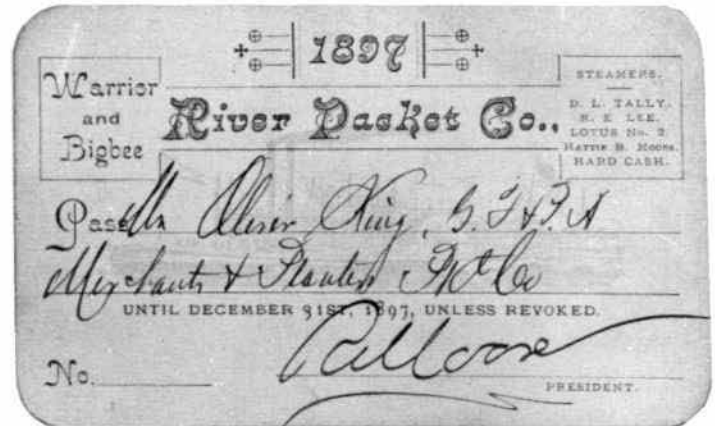 1897
Warrior
and
Bigbee
River Packet Co.,
STEAMERS.
D. L. TALLY.
R. E. LEE.
LOTUS No. 2.
HATTIE B. MOORE.
HARD CASH.
Pass Mr Oliver King, G. F & P. A
Merchants & Planters Co
UNTIL DECEMBER 31ST, 1897, UNLESS REVOKED.
No.
Moore
PRESIDENT.